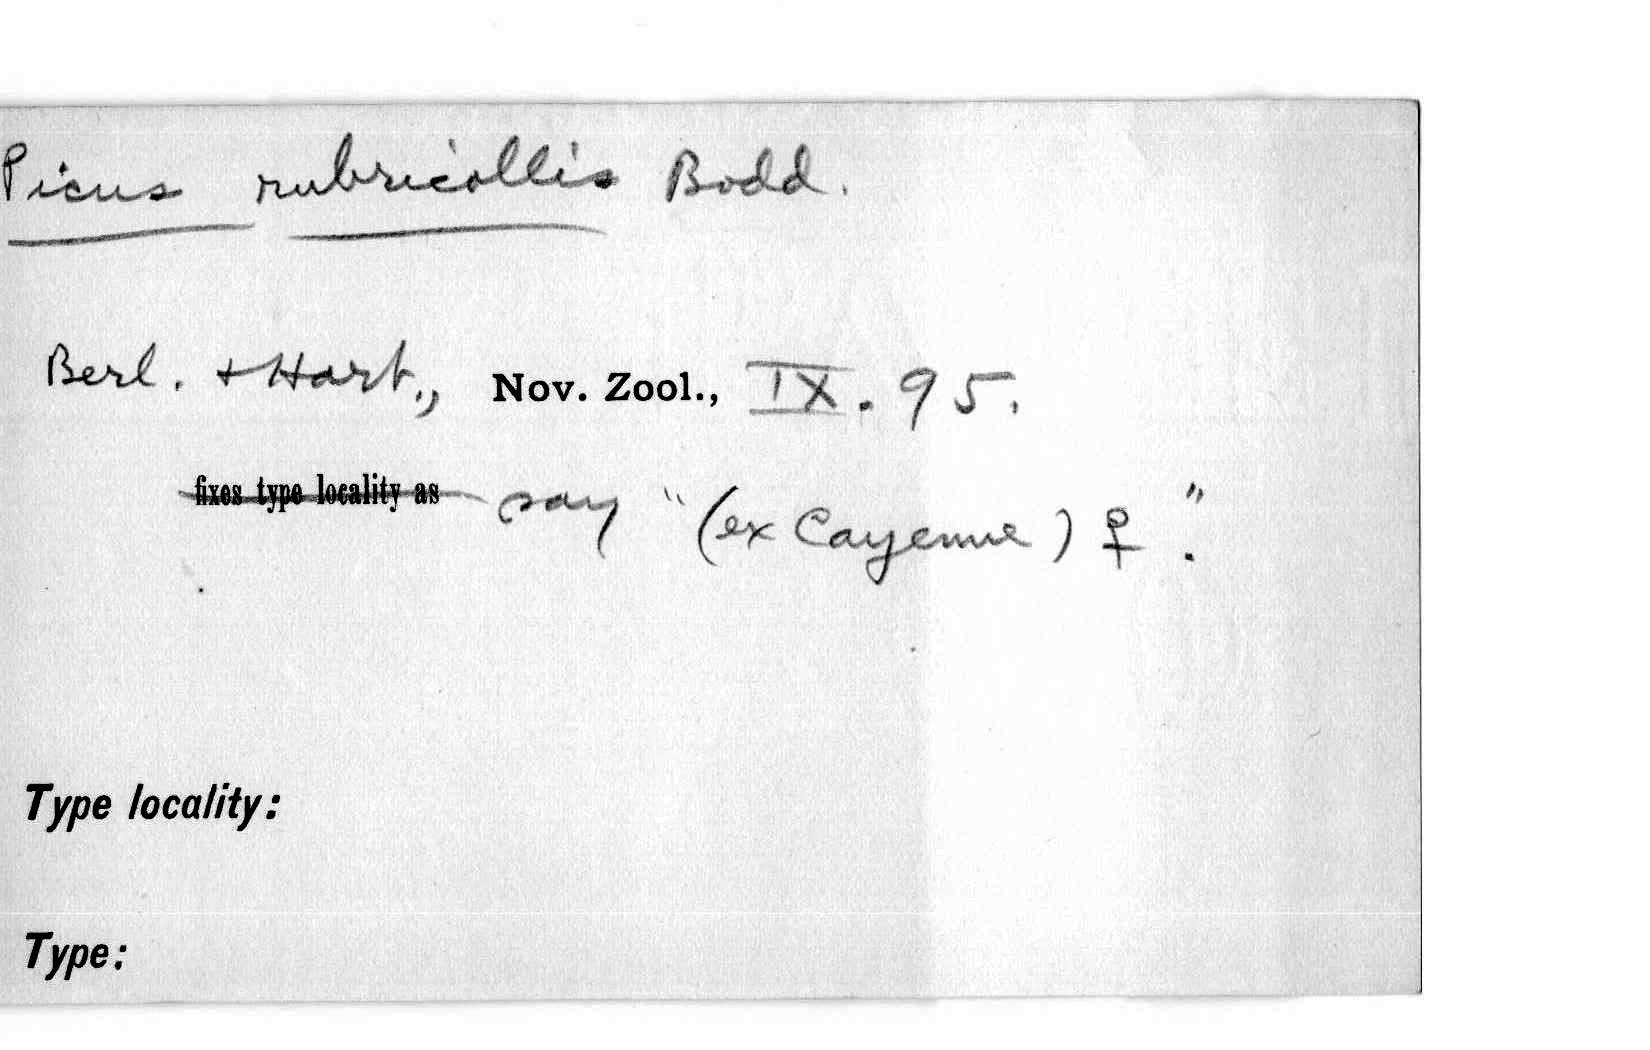 Picus rubricollis Bodd.
Berl. + Hart., Nov. Zool., IX. 95.
fixes type locality as say "(ex Cayenne) ♀".
Type locality:
Type: